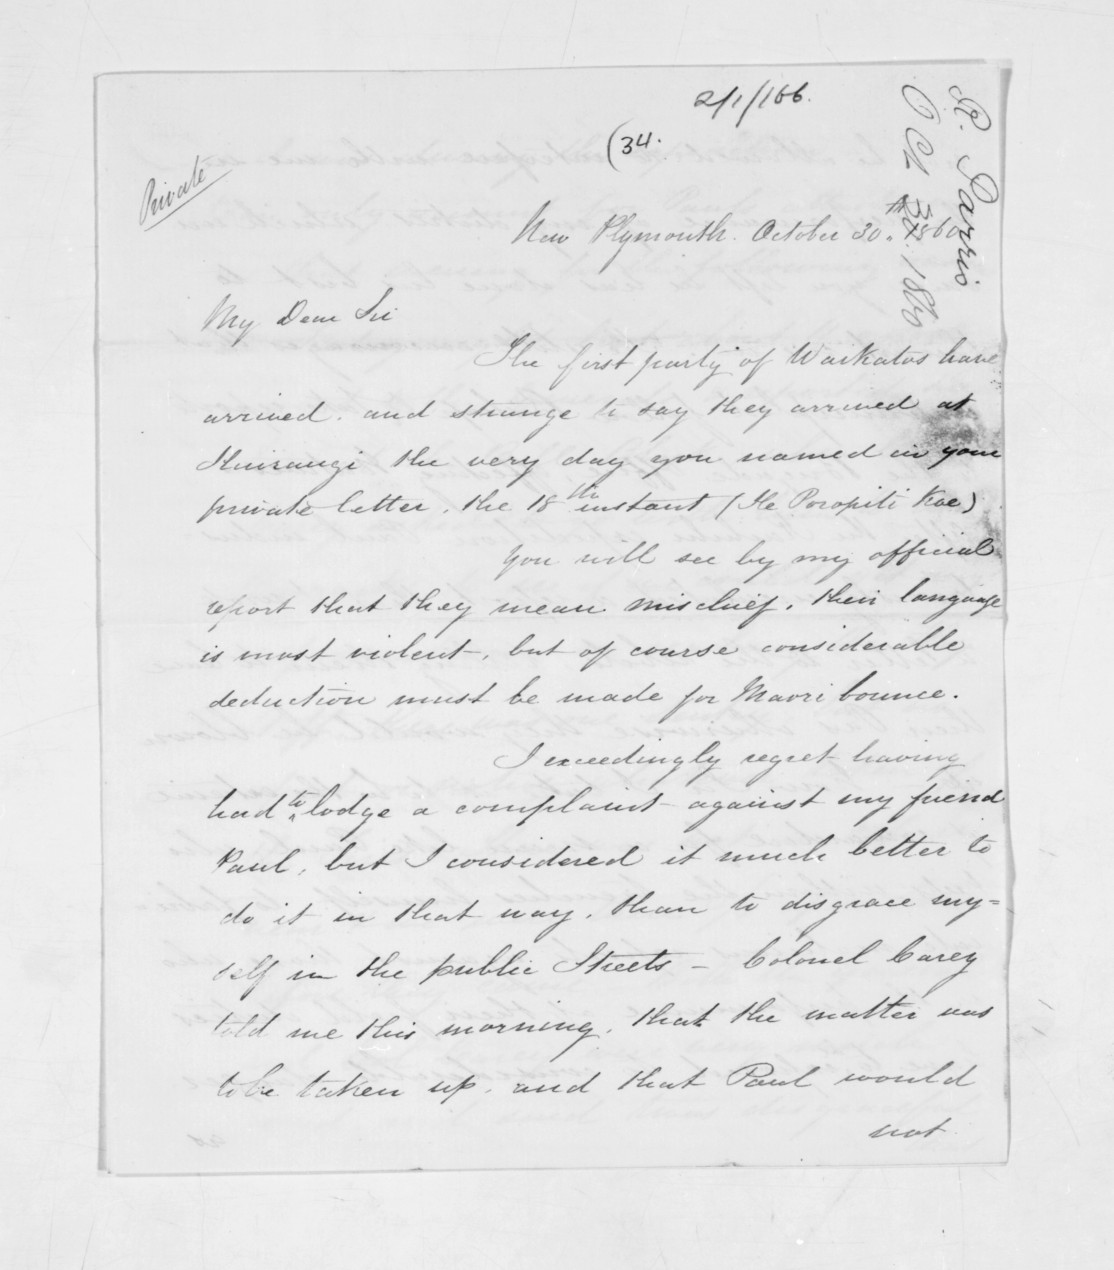 2/1/166.
(34.
R. Parris
Oct 30. 1860
Private
New Plymouth. October 30th 1860
My Dear Sir
The first party of Waikatos have
arrived. and strange to say they arrived at
the very day you named in your
private letter. the 18th instant (He Poropiti Koe)
You will see by my official
report that they mean mischief. their language
is most violent. but of course considerable
deduction must be made for Maori bounce.
I exceedingly regret having
had to lodge a complaint against my friend
Paul, but I considered it much better to
do it in that way. than to disgrace my=
self in the public Streets – Colonel Carey
told me this morning. that the matter was
to be taken up. and that Paul would
not